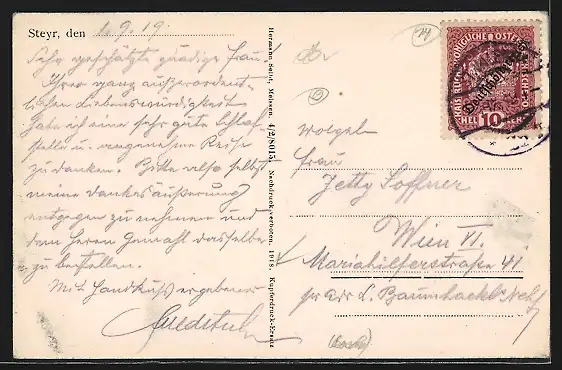 Steyr, den 1.9.19.
Sehr geschätzte gnädige Frau!
Ihrer ganz außerordent-
lichen Liebenswürdigkeit
habe ich eine sehr gute Schlaf-
stelle u. angenehme Reise
zu danken. Bitte also selbst
meine Dankesäußerung
entgegen zu nehmen und
dem Herrn Gemahl dasselbe
zu bestellen.
Mit Handkuß ergebener
Hermann Seibt, Meissen. 4/2/8015. Nachdruck verboten. 1918. Kupferdruck-Ersatz
KAISERLICHE KÖNIGLICHE ÖSTERREICHISCHE POST
Deutschösterreich
HELLER 10 HELLER
Wolgeb.
Frau
Jetty Loffner
Wien VI.
Mariahilferstraße 41
per adr L. Baumhackl's Nchf